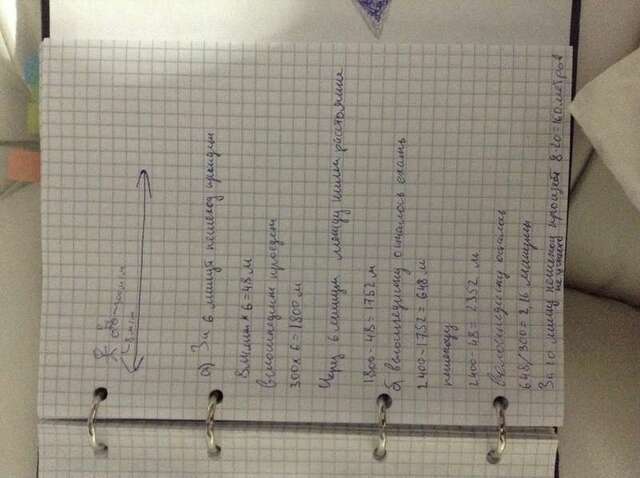 8 м/м
300 м/мин
а) За 6 минут пешеход пройдет
8 м/мин × 6 = 48 м
велосипедист проедет
300 × 6 = 1800 м
Через 6 минут между ними расстояние
1800 - 48 = 1752 м
б) велосипедисту осталось ехать
2400 - 1752 = 648 м
пешеходу
2400 - 48 = 2352 м
велосипедисту осталось
648/300 = 2,16 минуты
За 20 минут пешеход пройдет 8·20 = 160 метров